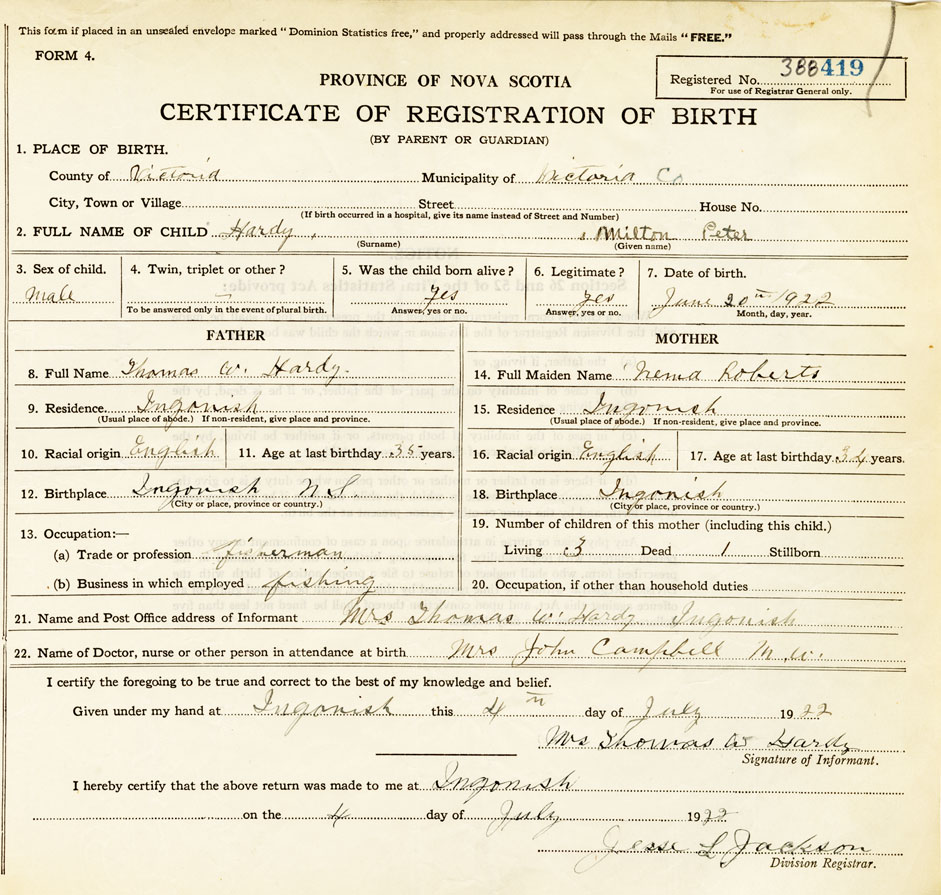 This form if placed in an unsealed envelope marked "Dominion Statistics free," and properly addressed will pass through the Mails "FREE."
FORM 4.
PROVINCE OF NOVA SCOTIA
Registered No. 388419
For use of Registrar General only.
CERTIFICATE OF REGISTRATION OF BIRTH
(BY PARENT OR GUARDIAN)
1. PLACE OF BIRTH.
County of Victoria Municipality of Victoria Co
City, Town or Village Street House No.
(If birth occurred in a hospital, give its name instead of Street and Number)
2. FULL NAME OF CHILD Hardy, Milton Peter
(Surname) (Given name)
3. Sex of child. 4. Twin, triplet or other? 5. Was the child born alive? 6. Legitimate? 7. Date of birth.
Male yes yes June 20th 1922
To be answered only in the event of plural birth. Answer, yes or no. Answer, yes or no. Month, day, year.
FATHER MOTHER
8. Full Name Thomas W. Hardy. 14. Full Maiden Name Roberts
9. Residence Ingonish 15. Residence Ingonish
(Usual place of abode.) If non-resident, give place and province. (Usual place of abode.) If non-resident, give place and province.
10. Racial origin English 11. Age at last birthday 35 years. 16. Racial origin English 17. Age at last birthday 34 years.
12. Birthplace Ingonish N S 18. Birthplace Ingonish
(City or place, province or country.) (City or place, province or country.)
13. Occupation:— 19. Number of children of this mother (including this child.)
(a) Trade or profession fisherman Living 3 Dead 1 Stillborn
(b) Business in which employed fishing 20. Occupation, if other than household duties
21. Name and Post Office address of Informant Mrs Thomas W. Hardy Ingonish
22. Name of Doctor, nurse or other person in attendance at birth Mrs John Campbell M.W.
I certify the foregoing to be true and correct to the best of my knowledge and belief.
Given under my hand at Ingonish this 4th day of July 1922
Mrs Thomas W Hardy
Signature of Informant.
I hereby certify that the above return was made to me at Ingonish
on the 4 day of July 1922
Jesse L Jackson
Division Registrar.